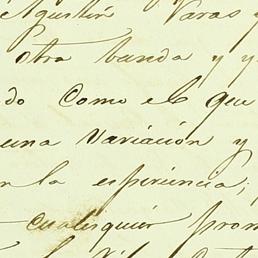 Agustín Varas y
otra banda y y
do como el que
una variación y
n la esperiencia;
cualisquier prom